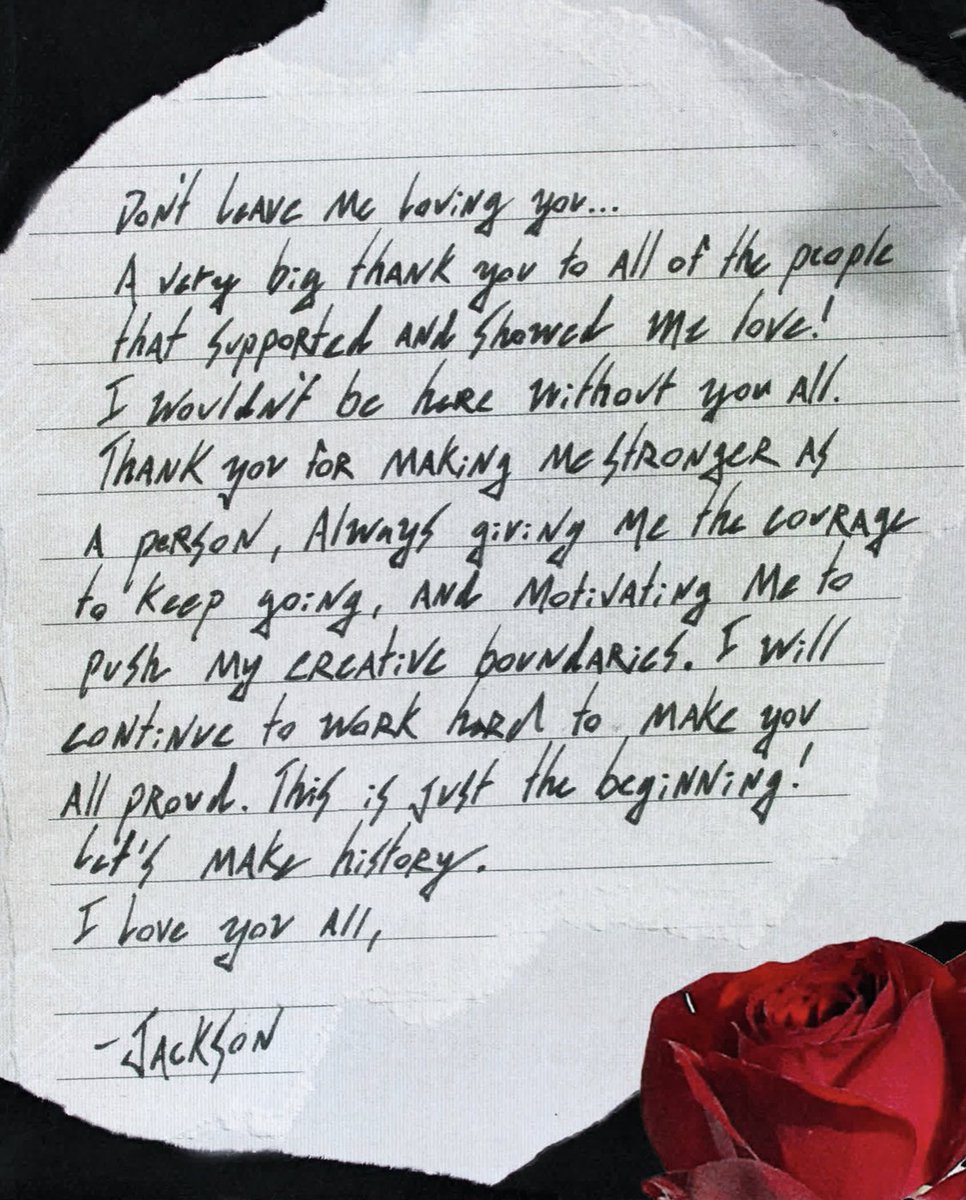 Don't leave me loving you...
A very big thank you to all of the people
that supported and showed me love!
I wouldn't be here without you all.
Thank you for making me stronger as
a person, always giving me the courage
to keep going, and motivating me to
push my creative boundaries. I will
continue to work hard to make you
all proud. This is just the beginning!
Let's make history.
I love you all,
-Jackson